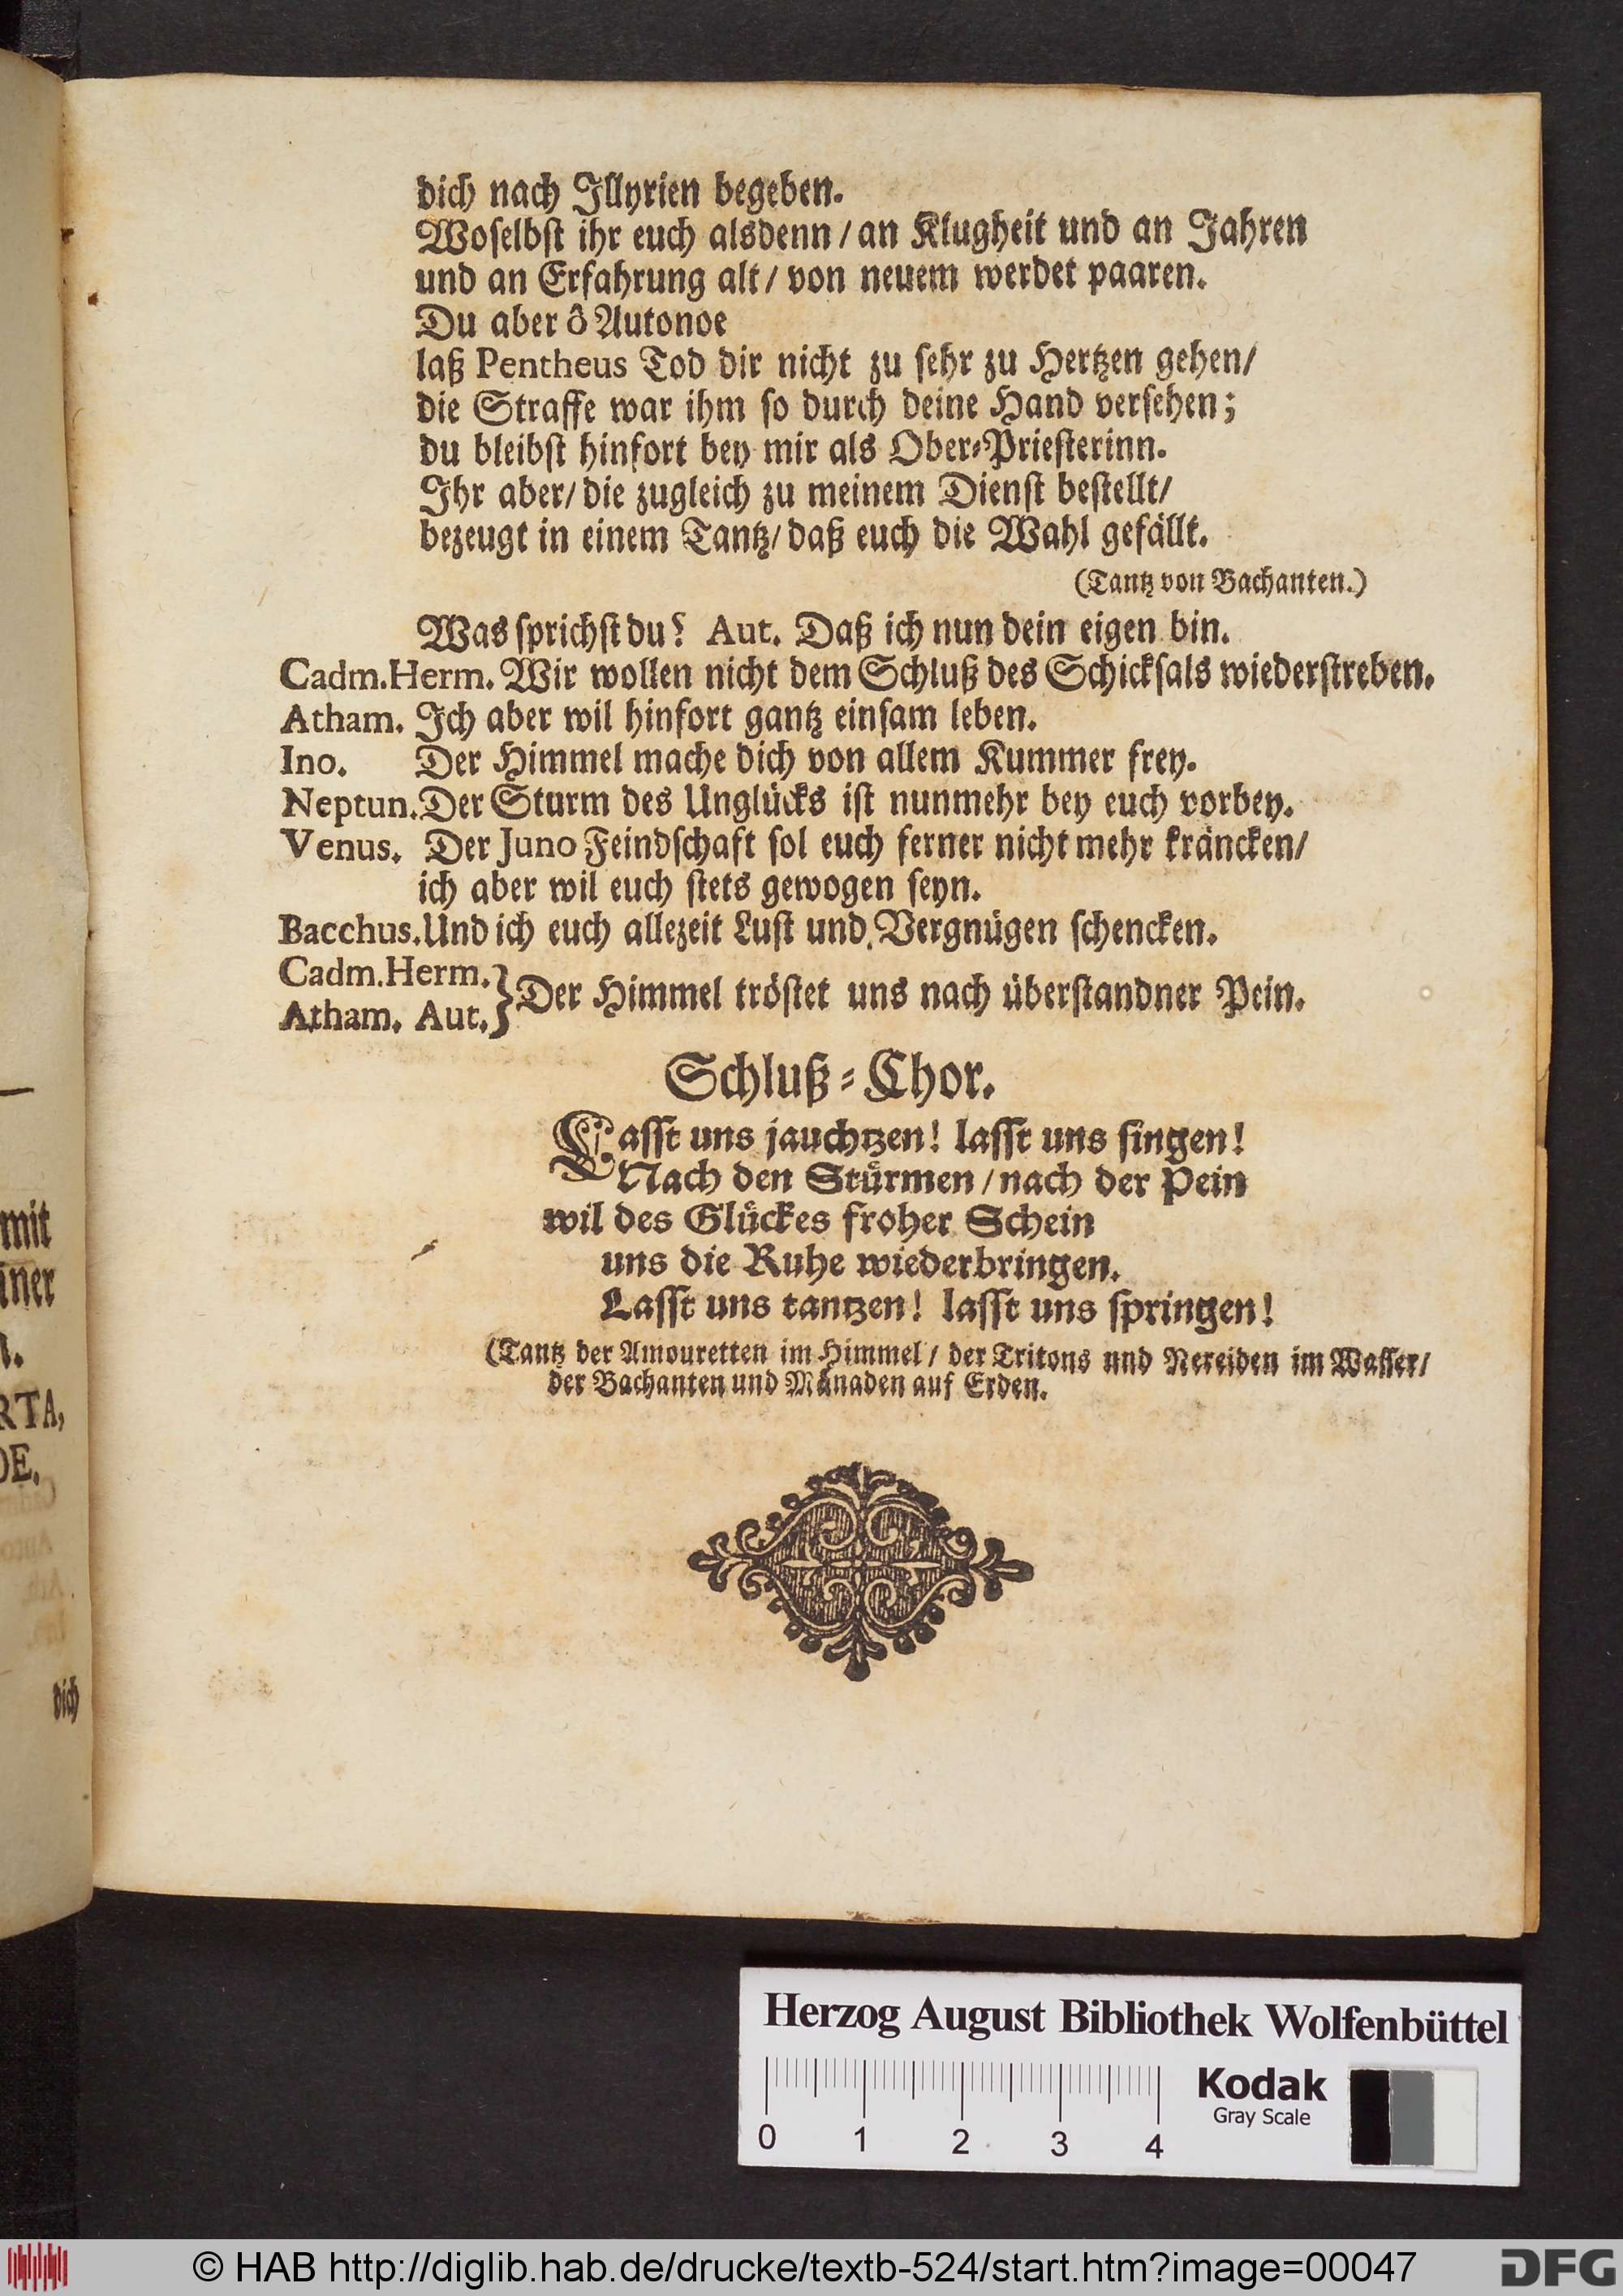 dich nach Illyrien begeben.
Woselbst ihr euch alsdenn / an Klugheit und an Jahren
und an Erfahrung alt / von neuem werdet paaren.
Du aber ô Autonoe
laß Pentheus Tod dir nicht zu sehr zu Hertzen gehen /
die Straffe war ihm so durch deine Hand versehen;
du bleibst hinfort bey mir als Ober-Priesterinn.
Ihr aber / die zugleich zu meinem Dienst bestellt /
bezeugt in einem Tantz / daß euch die Wahl gefällt.
(Tantz von Bachanten.)
Was sprichst du? Aut. Daß ich nun dein eigen bin.
Cadm. Herm. Wir wollen nicht dem Schluß des Schicksals wiederstreben.
Atham. Ich aber wil hinfort gantz einsam leben.
Ino. Der Himmel mache dich von allem Kummer frey.
Neptun. Der Sturm des Unglücks ist nunmehr bey euch vorbey.
Venus. Der Juno Feindschaft sol euch ferner nicht mehr kräncken /
ich aber wil euch stets gewogen seyn.
Bacchus. Und ich euch allezeit Lust und Vergnügen schencken.
Cadm. Herm.
Atham. Aut. } Der Himmel tröstet uns nach überstandner Pein.
Schluß-Chor.
Lasst uns jauchtzen! lasst uns singen!
Nach den Stürmen / nach der Pein
wil des Glückes froher Schein
uns die Ruhe wiederbringen.
Lasst uns tantzen! lasst uns springen!
(Tantz der Amouretten im Himmel / der Tritons nnd Nereiden im Wasser /
der Bachanten und Mänaden auf Erden.
mit
RTA,
DE.
dich
Herzog August Bibliothek Wolfenbüttel
0 1 2 3 4
Kodak
Gray Scale
© HAB http://diglib.hab.de/drucke/textb-524/start.htm?image=00047
DFG